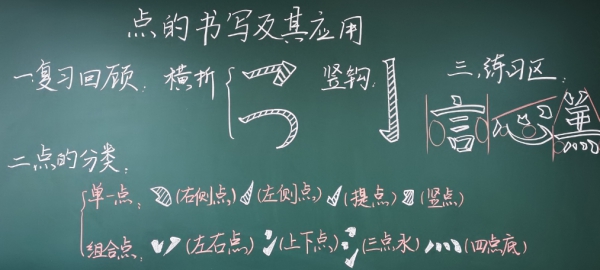 点的书写及其应用
一.复习回顾: 横折 竖钩:
三.练习区:
言心焦
二.点的分类:
单一点: (右侧点) (左侧点) (提点) (竖点)
组合点: (左右点) (上下点) (三点水) (四点底)